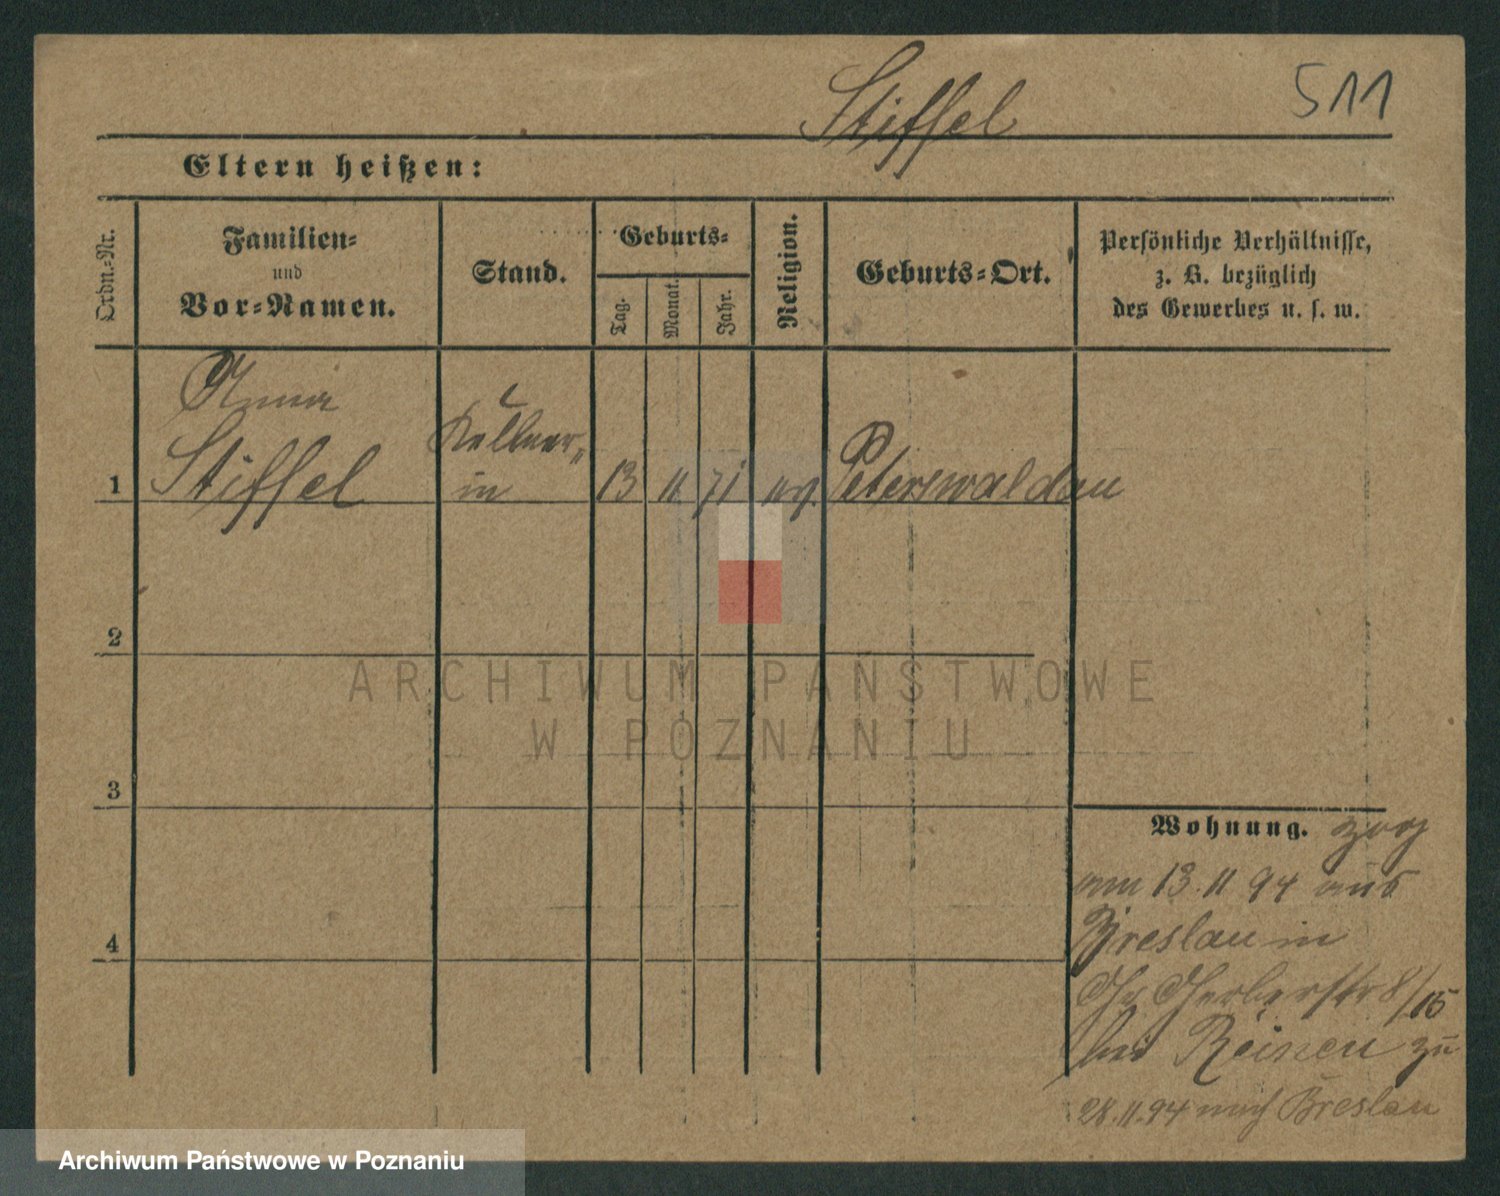 Stiffel
511
Eltern heißen:
Ordn.-Nr.
Familien-
und
Vor-Namen.
Stand.
Geburts-
Tag.
Monat.
Jahr.
Religion.
Geburts-Ort.
Persönliche Verhältnisse,
z. B. bezüglich
des Gewerbes u. s. w.
Anna
Stiffel
Kellner-
in
1
13
11
71
ev.
Peterswaldau
2
3
4
Wohnung. zog
am 13.11 94 aus
Breslau in
Gerberstr 8/15
bei Reinen zu
28.11.94 nach Breslau
ARCHIWUM PAŃSTWOWE
W POZNANIU
Archiwum Państwowe w Poznaniu